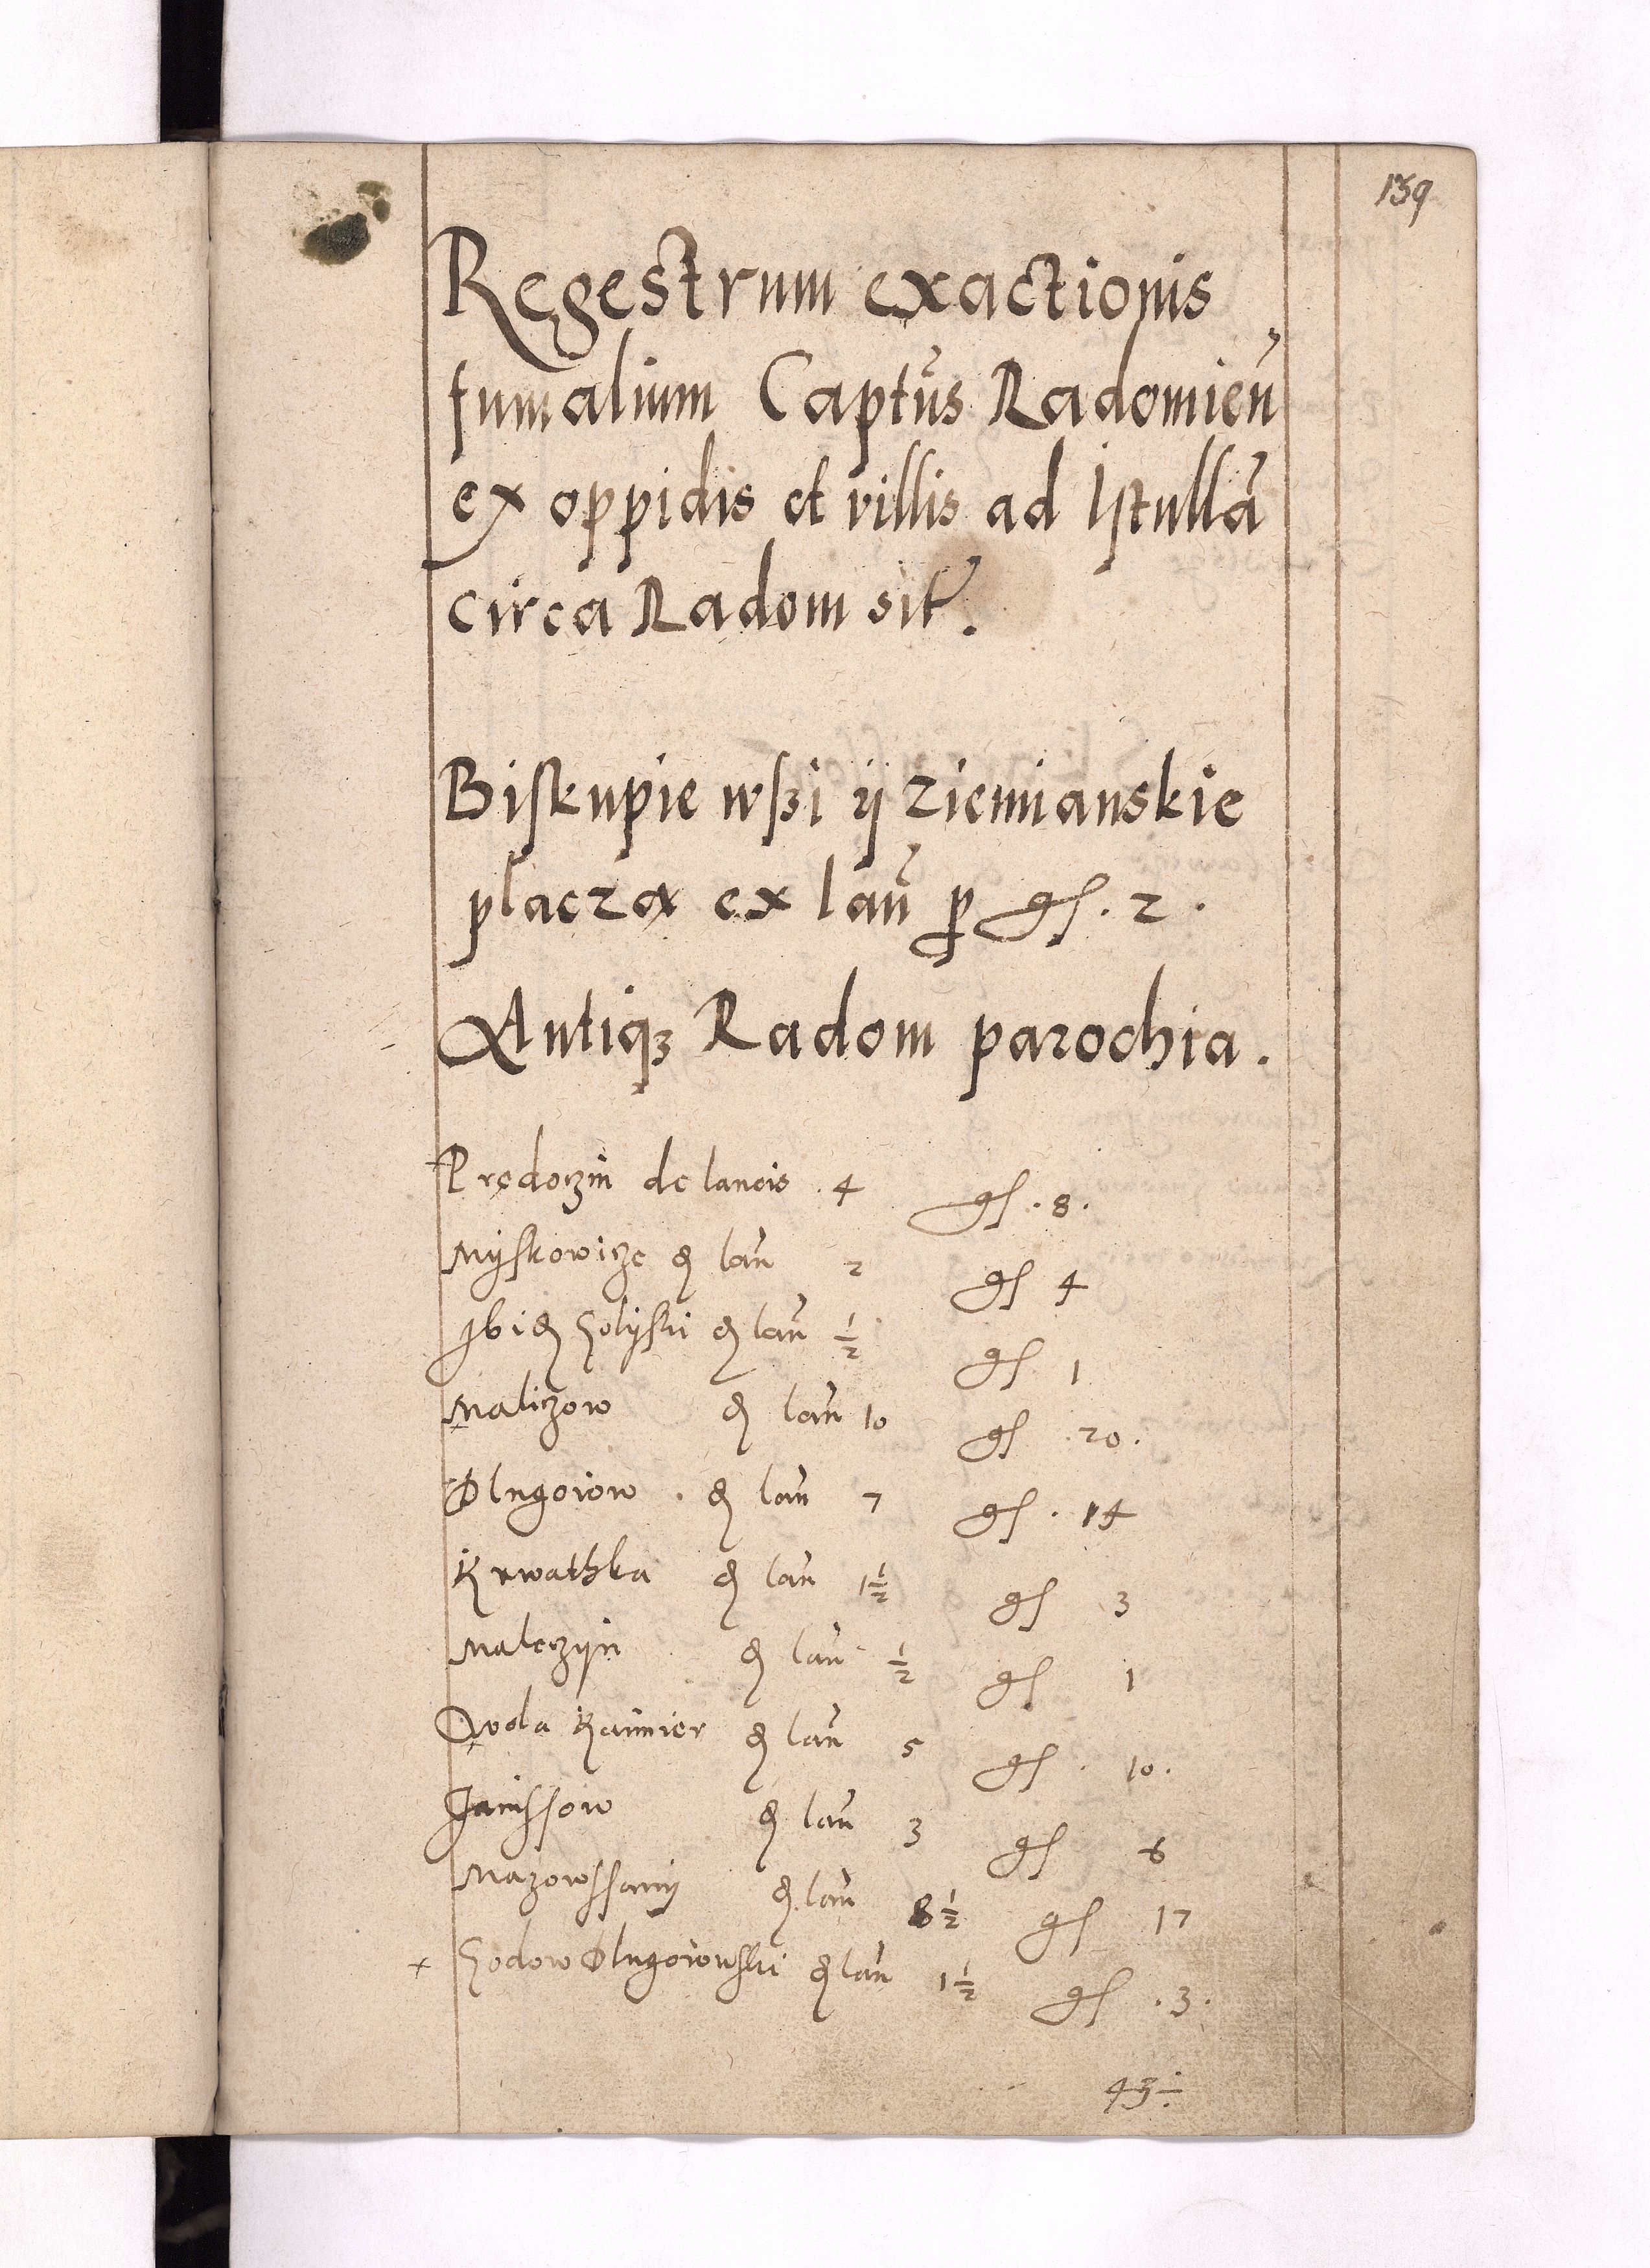 139
Regestrum exactionis
fumalium Captūs Radomień
ex oppidis et villis ad Istullā
circa Radom sit.
Biskupie wszi ij ziemianskie
placzą ex lań p gs. 2.
Antiqz Radom parochia.
Prędoczin de laneis 4 gs. 8.
Myskowicze d lań 2 gs 4
Ibid Golyski d lań ½ gs 1
Maliczow d lań 10 gs 20.
Dlugoiow. d lań 7 gs. 14
Krwathka d lań 1½ gs 3
Maleczyn d lań ½ gs 1
Wola d lań 5 gs. 10.
Janissow d lań 3 gs 6
Mazowssany d lań 8½ gs 17
+ Godow Dlugoiowski d lań 1½ gs. 3.
43÷